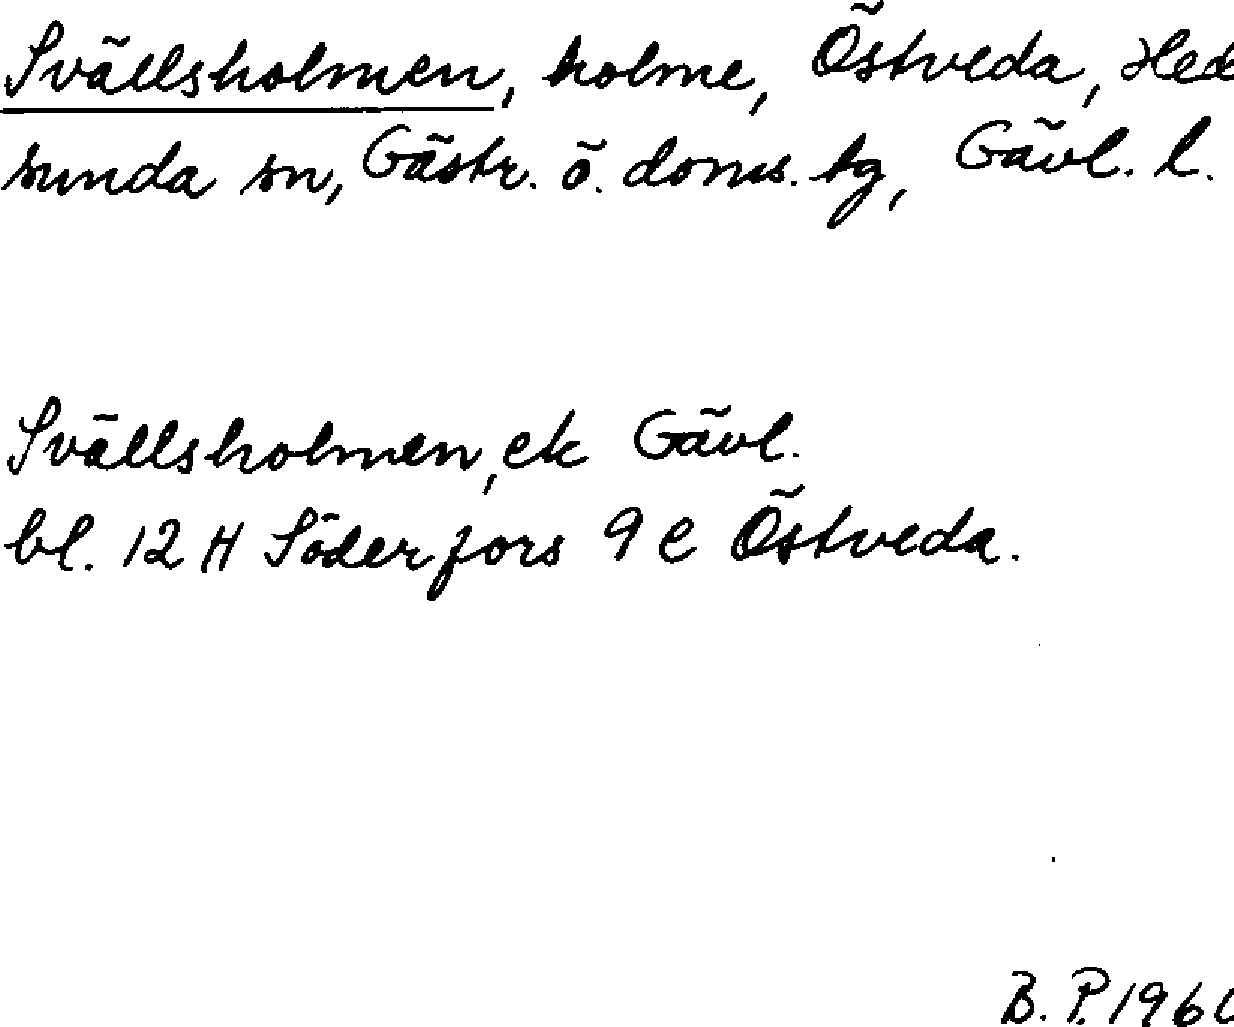 Svällsholmen, holme, Östveda, Hed
sunda sn, Gästr. ö. doms. tg, Gävl. l.
Svällsholmen, ek Gävl.
bl. 12 H Söderfors 9 e Östveda.
B. P. 1960